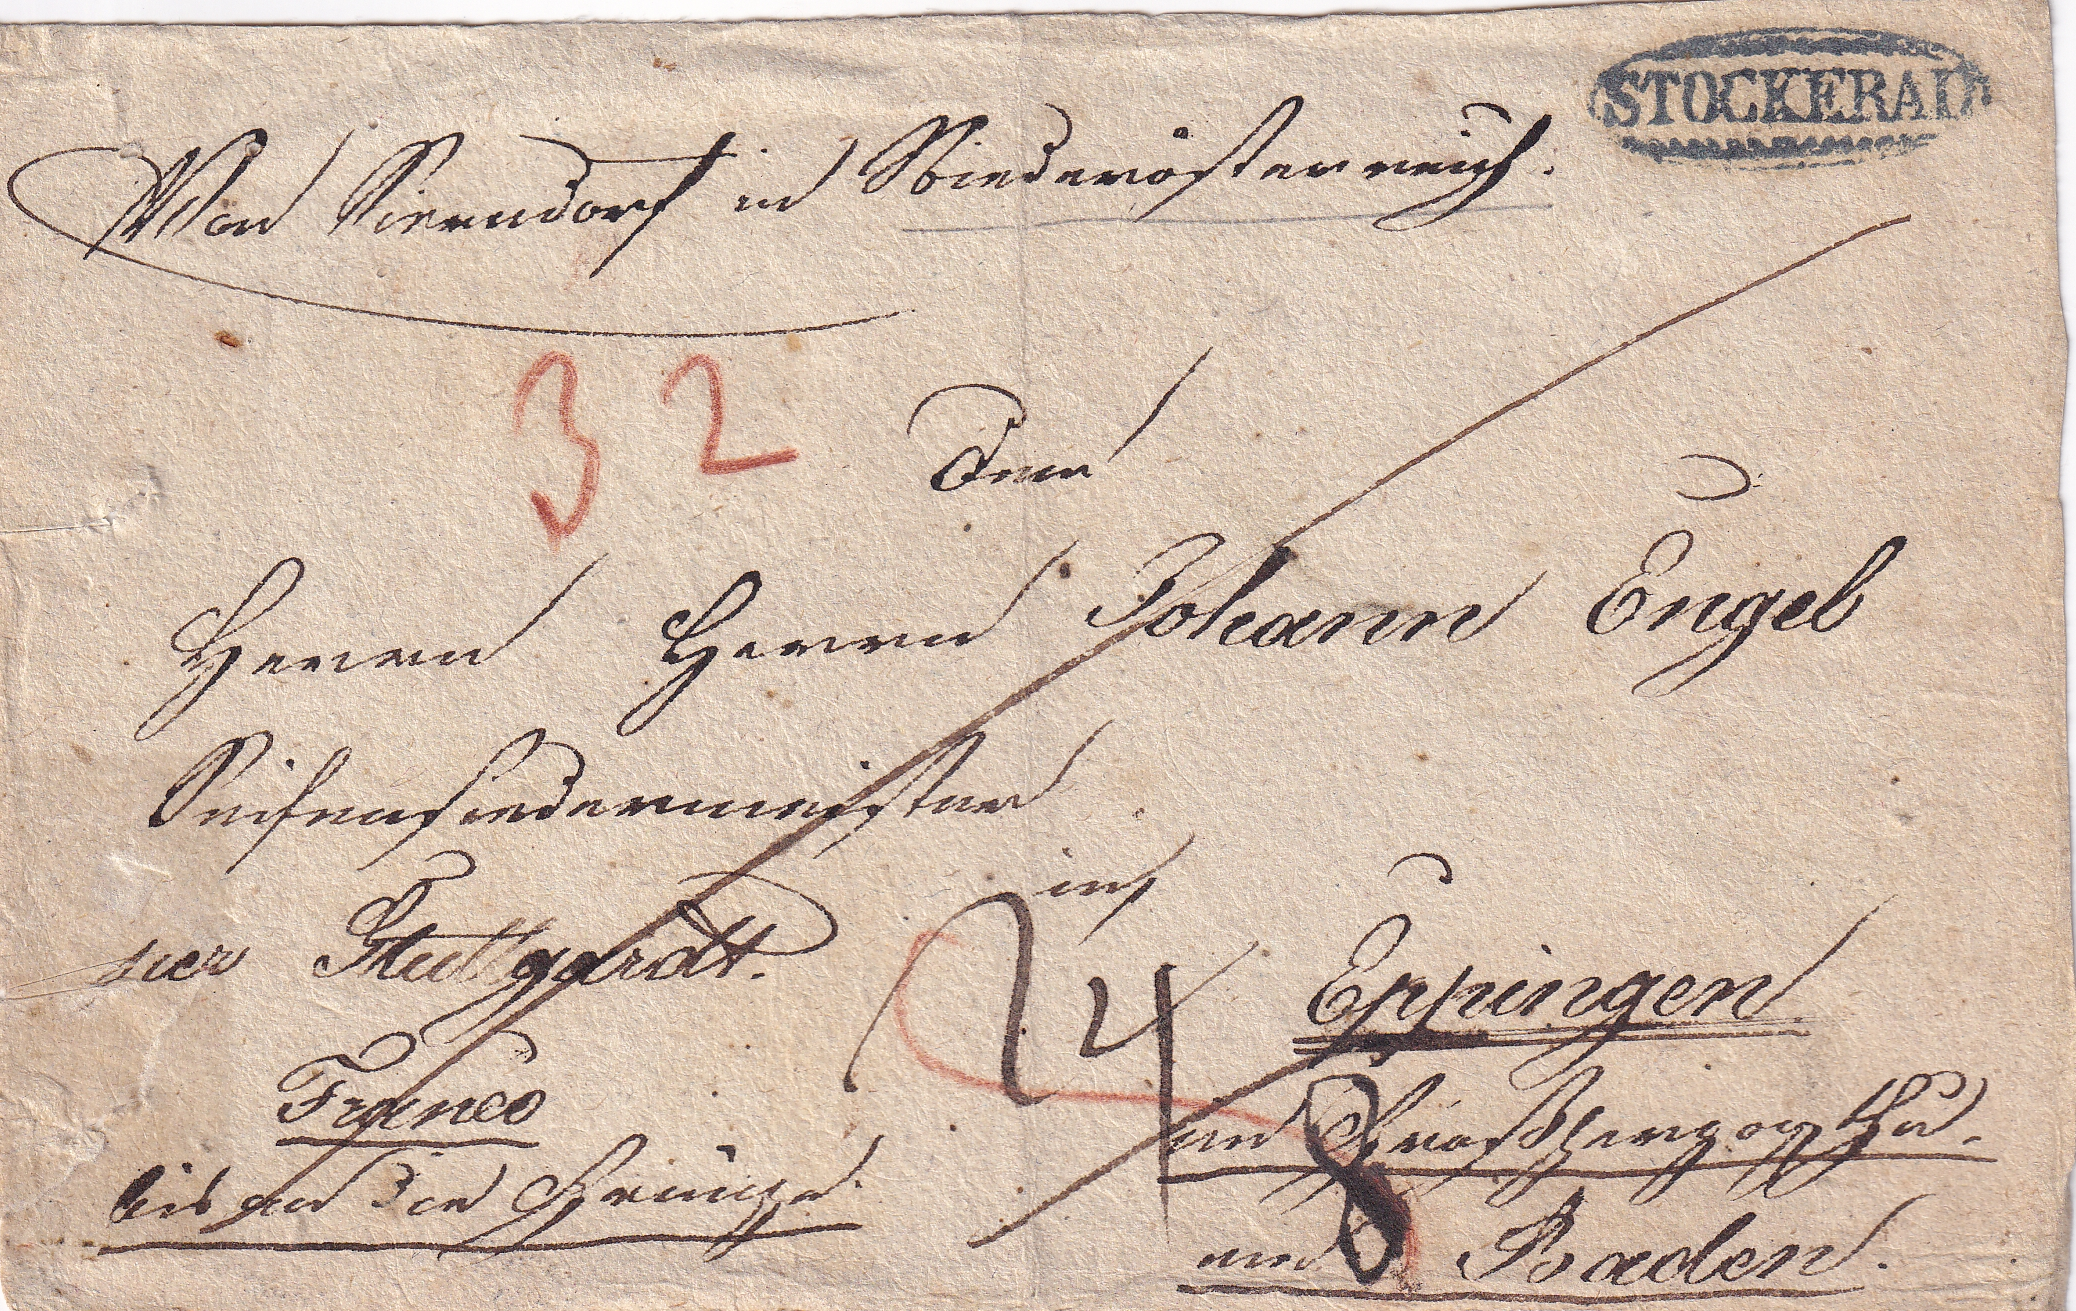 STOCKERAU
Von Sierndorf in Niederösterreich.
32
Dem
Herrn Herrn Johann Engel
Seifensiedermeister
in
per Stuttgardt.
Eppingen
24
Franco
im Großherzogthu-
8
bis an die Gränze.
um Baden.